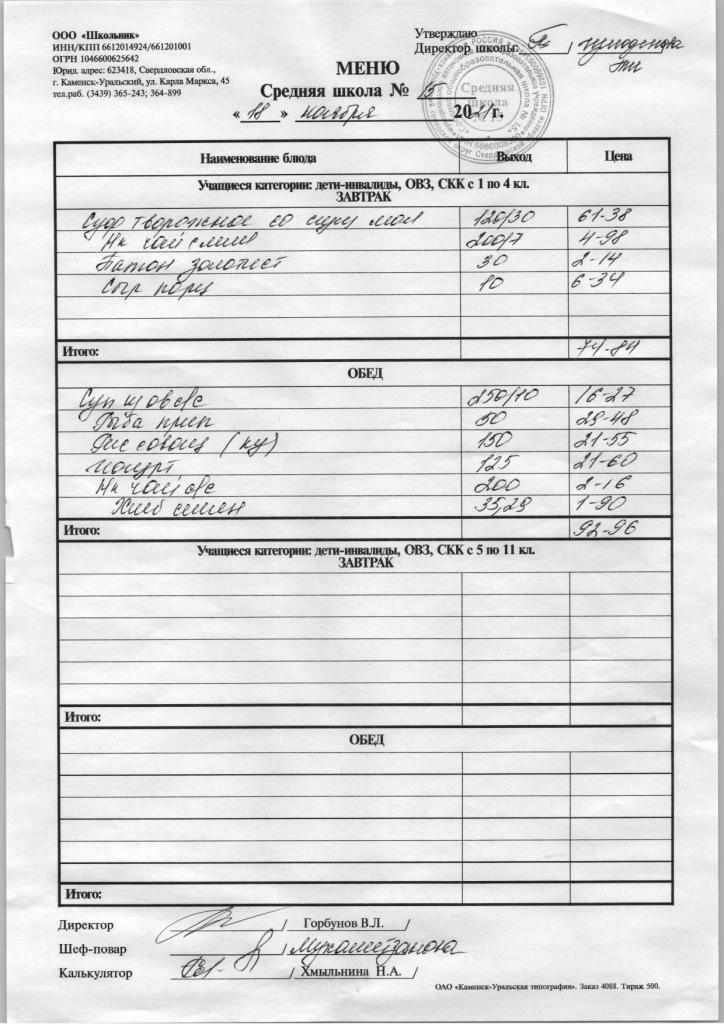 ООО «Школьник»
ИНН/КПП 6612014924/661201001
ОГРН 1046600625642
Юрид. адрес: 623418, Свердловская обл.,
г. Каменск-Уральский, ул. Карла Маркса, 45
тел.раб. (3439) 365-243; 364-899
Утверждаю
Директор школы:
МЕНЮ
Средняя школа № 15
« 18 » ноября 2021г.
Средняя школа № 15
Наименование блюда Выход Цена
Учащиеся категории: дети-инвалиды, ОВЗ, СКК с 1 по 4 кл.
ЗАВТРАК
Суф творожное со сгущ мол 120/30 61-38
Нк чай слив 200/7 4-98
Батон 30 2-14
Сыр порц 10 6-34
Итого: 74-84
ОБЕД
Суп 250/10 16-27
Рыба прип 50 29-48
Рис (ку) 150 21-55
Йогурт 125 21-60
Нк чай с/с 200 2-16
Хлеб 35,29 1-90
Итого: 92-96
Учащиеся категории: дети-инвалиды, ОВЗ, СКК с 5 по 11 кл.
ЗАВТРАК
Итого:
ОБЕД
Итого:
Директор / Горбунов В.Л. /
Шеф-повар / Мухаметзянова
Калькулятор / Хмыльнина Н.А. /
ОАО «Каменск-Уральская типография». Заказ 4088. Тираж 500.